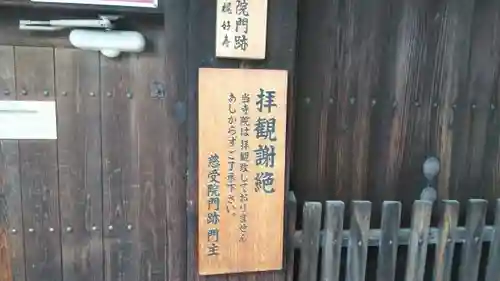 院門跡
梶好寿
拝観謝絶
当寺院は拝観致しておりません
あしからずご了承下さい。
慈受院門跡門主